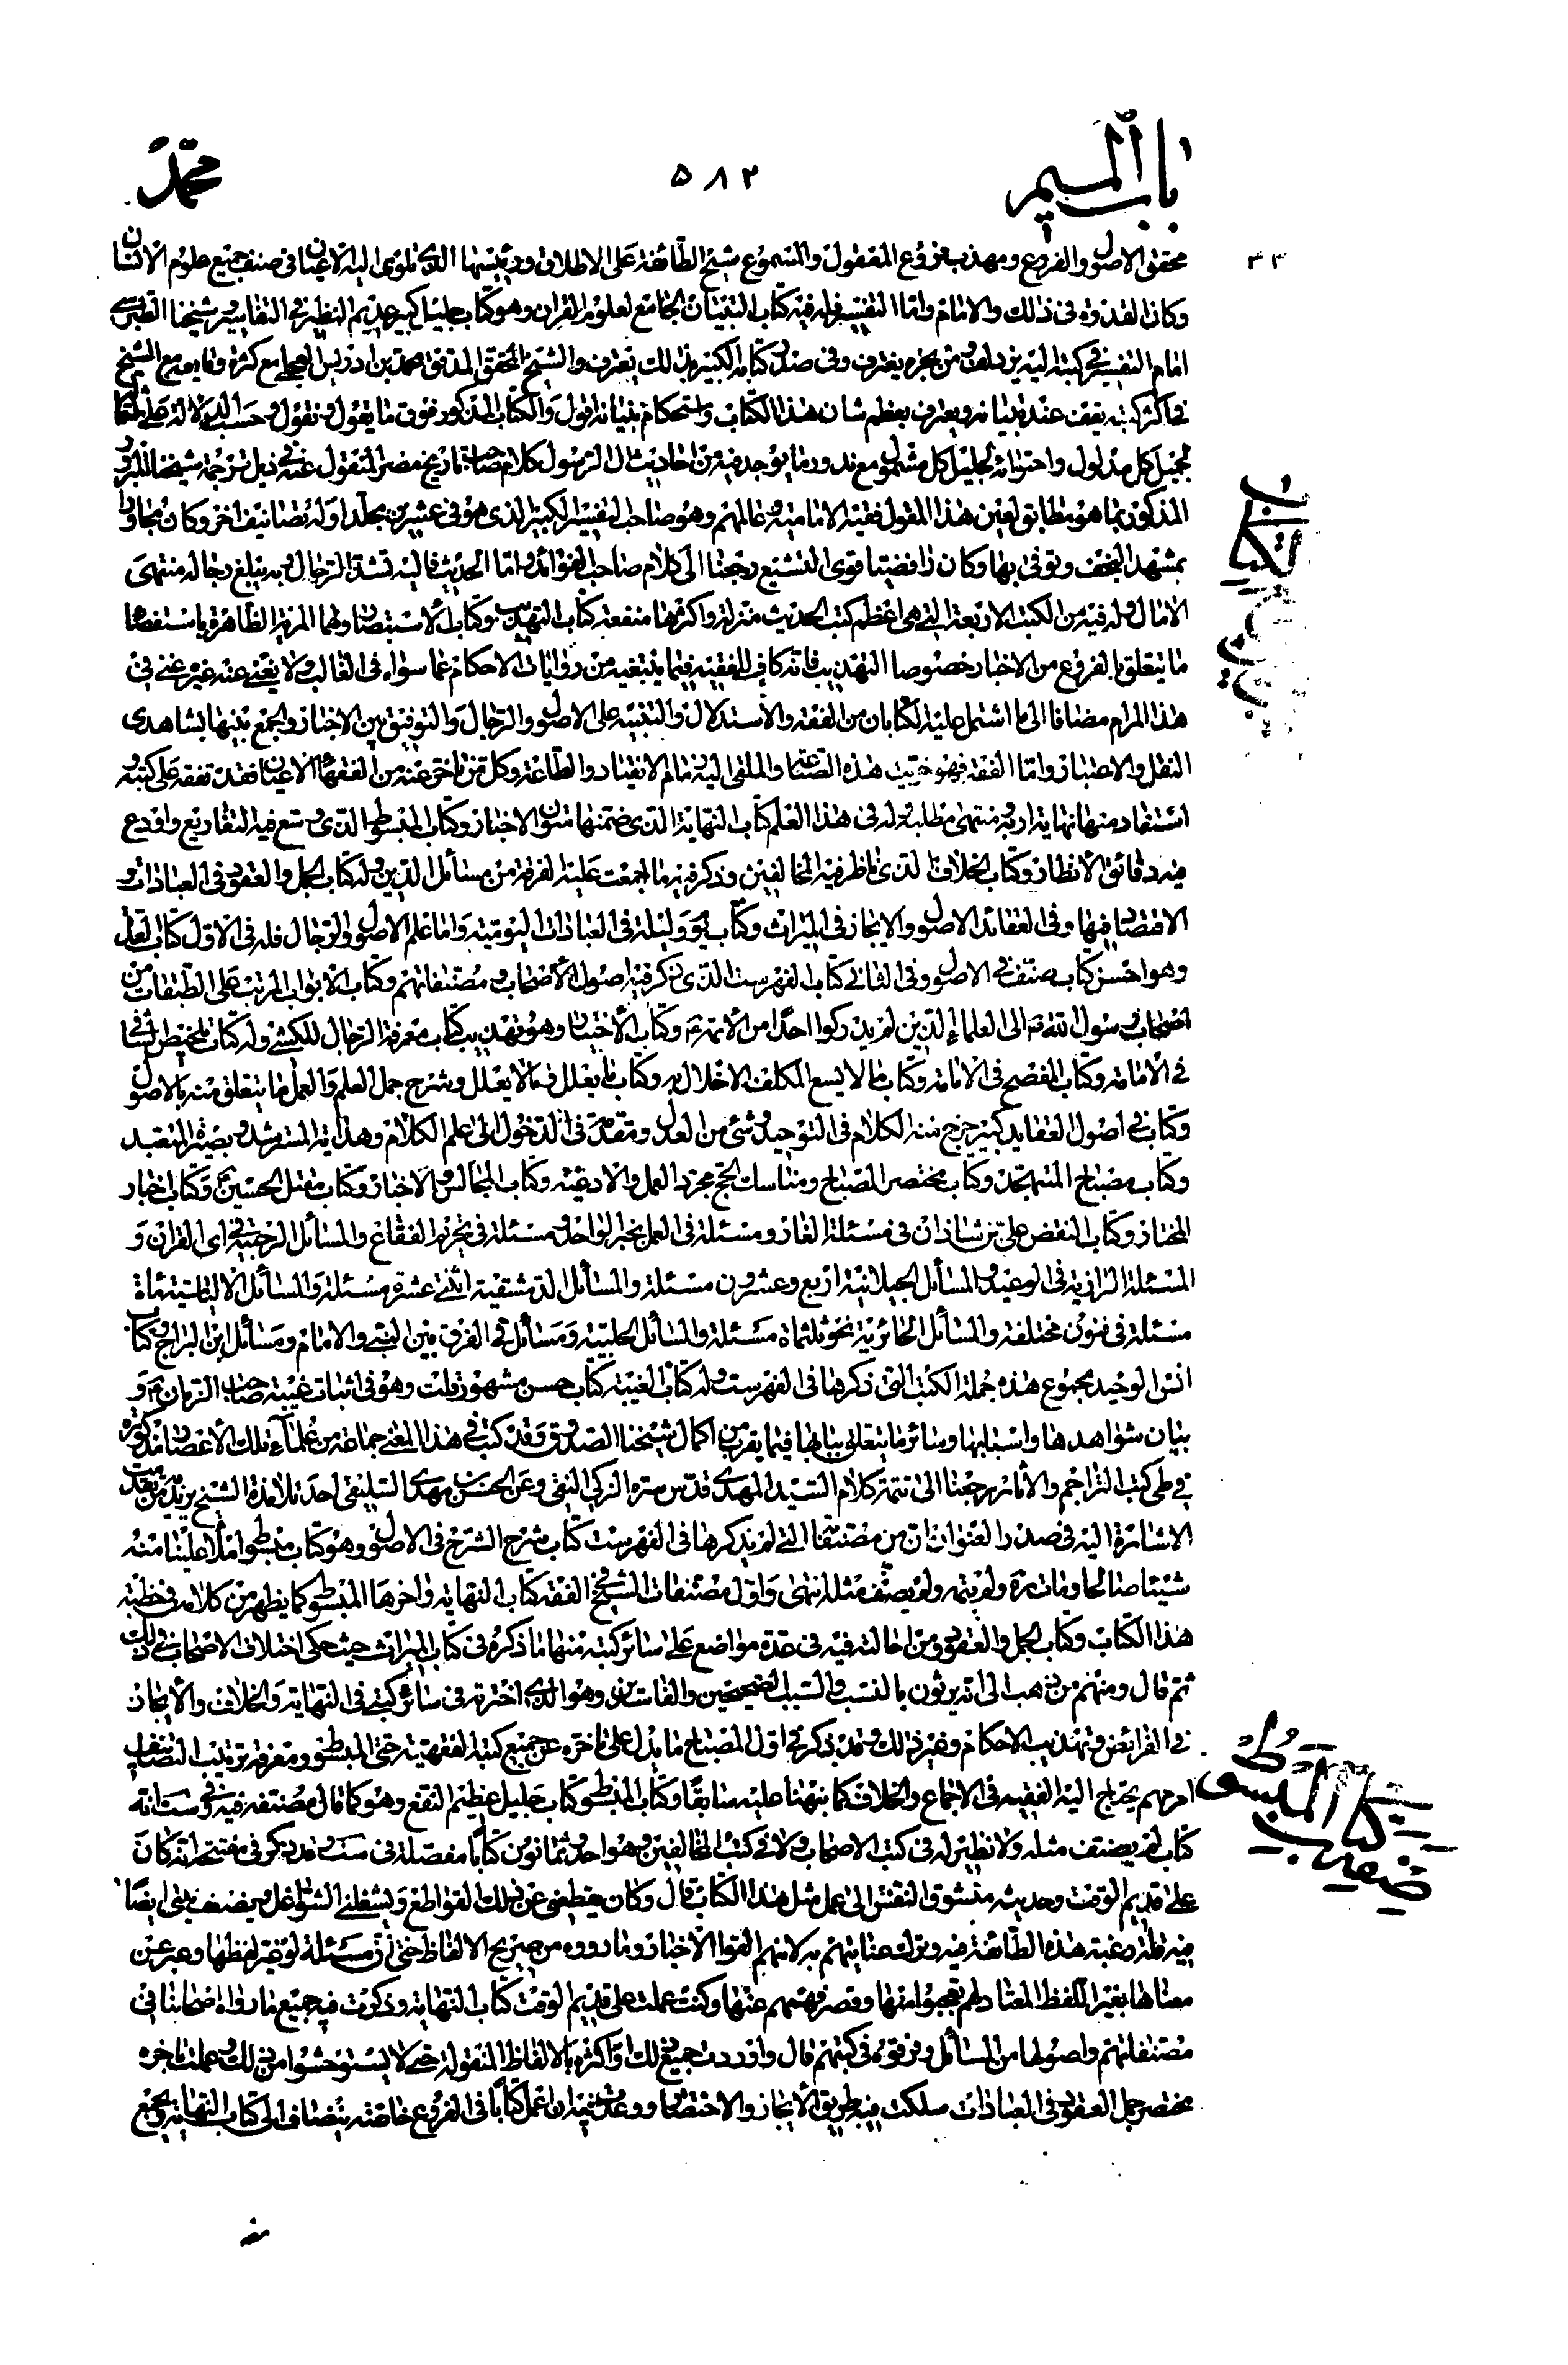 باب الميم
۵۸۲
محمّد
محقق الاصول والفروع ومهذب فروع المعقول والمسموع شيخ الطائفة على الاطلاق ورئيسها الذى تلوى اليه الاعناق صنف فى جميع علوم الاسلام
وكان القدوة فى ذلك والامام واما التفسير فله فيه كتاب التبيان الجامع لعلوم القران وهو كتاب جليل كبير عديم النظير فى التفاسير وشيخنا الطبرسى
امام التفسير فى كتبه اليه يزدلف ومن بحره يغترف وفى صدر كتابه الكبير بذلك يعترف والشيخ المحقق المدقق محمد بن ادريس العجلى مع كثرة وقايعه مع الشيخ
فى اكثر كتبه يقف عند تبيانه ويعترف بعظم شان هذا الكتاب واستحكام بنيانه اقول والكتاب المذكور فوق ما يقول ونقول وحسب الدلالة على
لجميل كل مدلول واحتوائه لجليل كل مشمول مع ندور ما يوجد فيه من احاديث ال الرسول كلام صاحب تاريخ مصر المنقول عنه فى ذيل ترجمة شيخنا المبرور
المذكور بما هو مطابق لعين هذا المقول فقيه الامامية وعالمهم وهو صاحب التفسير الكبير الذى هو فى عشرين مجلدا وله تصانيف اخر وكان مجاورا
بمشهد النجف وتوفى بها وكان رافضيا قوى التشيع رجعنا الى كلام صاحب الفوائد واما الحديث فاليه تشد الرحال وبه يبلغ رجاله منتهى
الامال وله فيه من الكتب الاربعة التى هى اعظم كتب الحديث منزلة واكثرها منفعة كتاب التهذيب وكتاب الاستبصار ولهما المزية الظاهرة باستقصاء
ما يتعلق بالفروع من الاخبار خصوصا التهذيب فانه كاف للفقيه فيما يبتغيه من روايات الاحكام عما سواه فى الغالب ولا يغنى عنه غيره غنى فى
هذا المرام مضافا الى ما اشتمل عليه الكتابان من الفقه والاستدلال والتنبيه على الاصول والرجال والتوفيق بين الاخبار والجمع بينها بشاهدى
النقل والاعتبار واما الفقه فهو خريت هذه الصناعة والملقى اليه زمام الانقياد والطاعة وكل من تاخر عنه من الفقهاء الاعيان فقد تفقه على كتبه و
استفاد منها نهاية اربه ومنتهى مطلبه وله فى هذا العلم كتاب النهاية الذى ضمنها متون الاخبار وكتاب المبسوط الذى وسع فيه التفاريع واودع
فيه دقائق الانظار وكتاب الخلاف الذى ناظر فيه المخالفين وذكر فيه ما اجمعت عليه الفرقة من مسائل الدين وله كتاب الجمل والعقود فى العبادات و
الاقتصاد فيها وفى العقائد الاصول والايجاز فى الميراث وكتاب يوم وليلة فى العبادات اليومية واما علم الاصول والرجال فله فى الاول كتاب العدة
وهو احسن كتاب صنف فى الاصول وفى الثانى كتاب الفهرست الذى ذكر فيه اصول الاصحاب ومصنفاتهم وكتاب الابواب المرتب على الطبقات من
اصحاب رسول الله ص الى العلماء الذين لم يدركوا احدا من الائمة ع وكتاب الاختيار وهو تهذيب كتاب معرفة الرجال للكشى وله كتاب تلخيص الشافى
فى الامامة وكتاب المفصح فى الامامة وكتاب ما لا يسع المكلف الاخلال به وكتاب ما يعلل وما لا يعلل وشرح جمل العلم والعمل ما يتعلق منه بالاصول
وكتاب فى اصول العقايد كبير خرج منه الكلام فى التوحيد وشئ من العدل ومقدمة فى الدخول الى علم الكلام وهداية المسترشد وبصيرة المتعبد
وكتاب مصباح المتهجد وكتاب مختصر المصباح ومناسك الحج مجرد العمل والادعية وكتاب المجالس والاخبار وكتاب مقتل الحسين ع وكتاب اخبار
المختار وكتاب النقض على بن شاذان فى مسئلة الغار ومسئلة فى العمل بخبر الواحد ومسئلة فى تحريم الفقاع والمسائل الرجبية فى اى القران و
المسئلة الرازية فى الوعيد والمسائل الجيلانية اربع وعشرون مسئلة والمسائل الدمشقية اثنى عشرة مسئلة والمسائل الالياسية مائة
مسئلة فى فنون مختلفة والمسائل الحائرية نحو ثلثمائة مسئلة والمسائل الحلبية ومسائل فى الفرق بين النبى والامام ومسائل ابن البراج وكتاب
انس الوحيد مجموع هذه جملة الكتب التى ذكرها فى الفهرست وله كتاب الغيبة كتاب حسن مشهور قلت وهو فى اثبات غيبة صاحب الزمان ع و
بيان شواهدها واسبابها وسائر ما يتعلق ببابها فيما يقرب من اكمال شيخنا الصدوق وقد كتب فى هذا المعنى جماعة من علماء تلك الاعصار مذكورة
فى طى كتب التراجم والاثار رجعنا الى تتمة كلام السيد المهدى قدس سره الزكى النقى وعن الحسن بن مهدى السليقى احد تلامذة الشيخ
الاشارة اليه فى صدر العنوان ان من مصنفاته التى لم يذكرها فى الفهرست كتاب شرح الشرح فى الاصول وهو كتاب مبسوط املا علينا منه
شيئا صالحا ومات ره ولم يتمه ولم يصنف مثله انتهى واول مصنفات الشيخ فى الفقه كتاب النهاية واخرها المبسوط كما يظهر من كلامه فى خطبة
هذا الكتاب وكتاب الجمل والعقود ومن احالته فيه فى عدة مواضع على سائر كتبه منها ما ذكره فى كتاب الميراث حيث حكى اختلاف الاصحاب فى ذلك
ثم قال ومنهم من ذهب الى انه يرثون بالنسب والسبب الصحيحين والفاسدين وهو الذى اخترته فى سائر كتبى فى النهاية والخلاف والايجاز
فى الفرائض وتهذيب الاحكام وغير ذلك وقد ذكر فى اول المصباح ما يدل على تاخره عن جميع كتبه الفقهية حتى المبسوط ومعرفة ترتيب التصانيف
امر مهم يحتاج اليه الفقيه فى الاجماع والخلاف كما نبهنا عليه سابقا وكتاب المبسوط كتاب جليل عظيم النفع وهو كما قال مصنفه فيه وفى ست انه
كتاب لم يصنف مثله ولا نظير له فى كتب الاصحاب ولا فى كتب المخالفين وهو احد وثمانون كتابا مفصلة فى ست وقد ذكر فى مفتتحه انه كان
على قديم الوقت وحديثه متشوق النفس الى عمل مثل هذا الكتاب قال وكان يقطعنى عن ذلك القواطع ويشغلنى الشواغل ويضعف نيتى ايضا
فيه قلة رغبة هذه الطائفة فيه وترك عنايتهم به لانهم القوا الاخبار وما رووه من صريح الالفاظ حتى ان مسئلة لو غير لفظها وعبر عن
معناها بغير اللفظ المعتاد لهم تعجبوا منها وقصر فهمهم عنها وكنت عملت على قديم الوقت كتاب النهاية وذكرت فيه جميع ما رواه اصحابنا فى
مصنفاتهم واصولها من المسائل وفرقوه فى كتبهم قال واوردت جميع ذلك او اكثره بالالفاظ المنقولة حتى لا يستوحشوا من ذلك وعملت باخره
مختصر جمل العقود فى العبادات سلكت فيه طريق الايجاز والاختصار ووعدت فيه ان اعمل كتابا فى الفروع خاصة يضاف الى كتاب النهاية ويجتمع